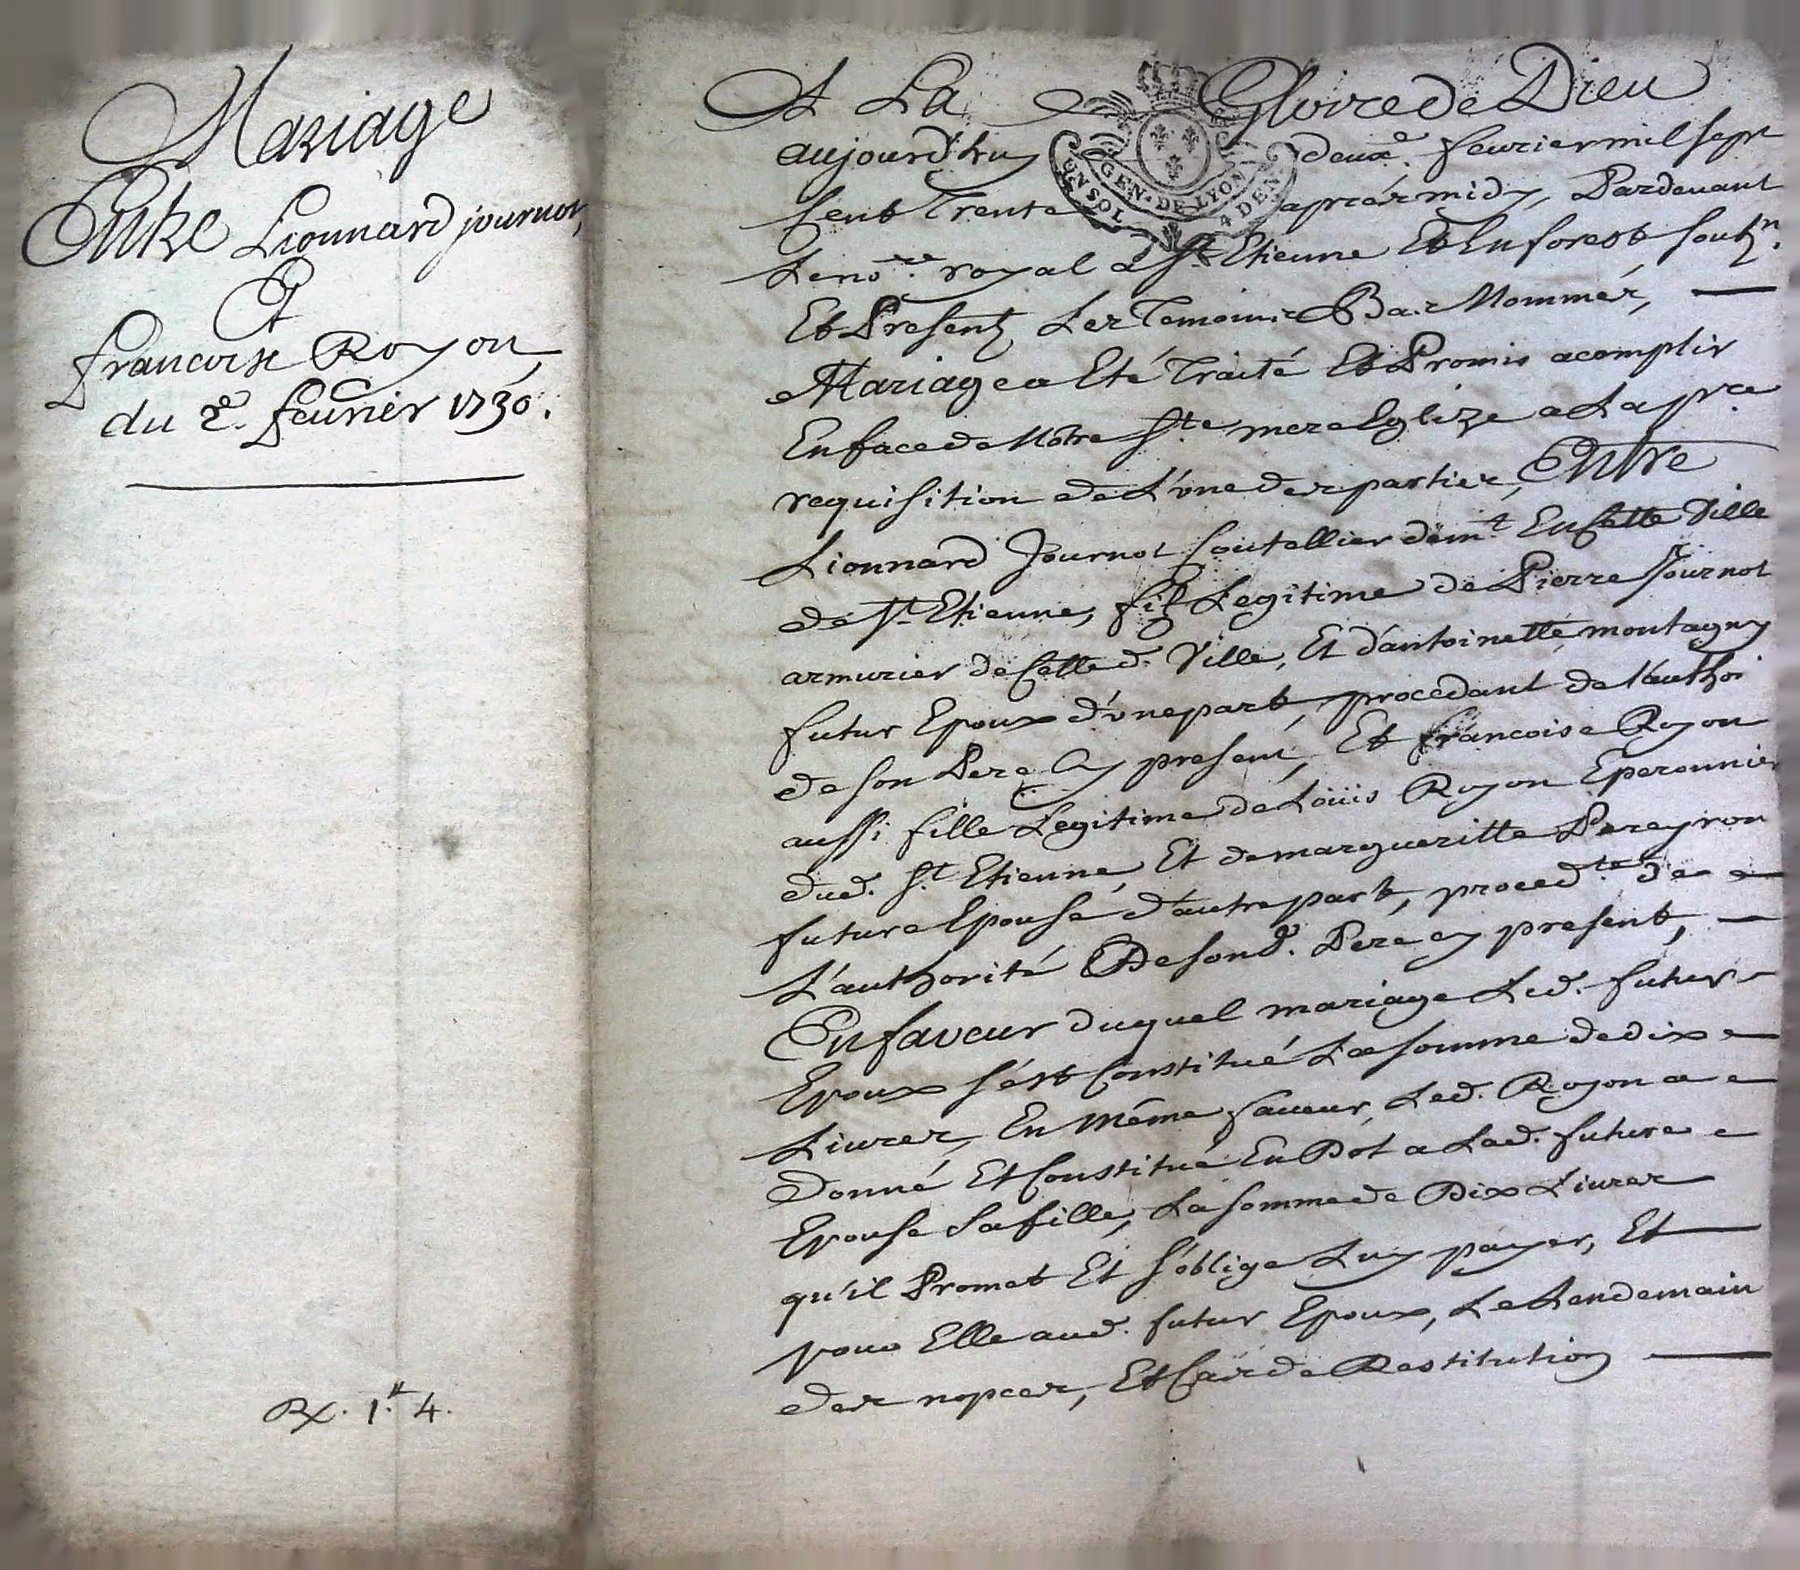 Mariage
Entre Lionnard journot,
Et
francoise Royon
du 2e. feurier 1730.
Rx. 1tt. 4.
A La Gloire de Dieu
aujourd'huy deuxe. feurier mil sept
Cent Trente apres midy, Pardeuant
Le nore. royal a St Etienne Et En forest soubzn.
Et Presentz Les Temoins Bas Nommés,
Mariage a Eté Traité Et Promis acomplir
En face de Notre Ste. mere Eglize a La pre.
requisition de L'une des parties, Entre
Lionnard Journot Coutellier demt. En Cette Ville
de St Etienne, filz Legitime de Pierre Journot
armurier de Cette d. Ville, Et d'antoinette montagny
futur Epoux d'une part, procedant de l'autho.
de son Pere Cy present, Et francoise Royon
aussi fille Legitime de Loüis Royon Eperonnier
dud. St. Etienne, Et de margueritte Pereyron
future Epouse d'autre part, procedte. de
L'authorité De sond. Pere cy present,
En faveur duquel mariage Led. futur
Epoux s'est Constitué La somme de dix
Liures, En même faueur, Led. Royon a
Donné Et Constitué En Dot a Lad. future
Epouse sa fille, La somme de Dix Liures
qu'il Promet Et s'oblige Luy payer, Et
pour Elle aud. futur Epoux, Le Lendemain
des nopces, Et Cas de Restitution
GEN. DE LYON
UN SOL 4 DEN.